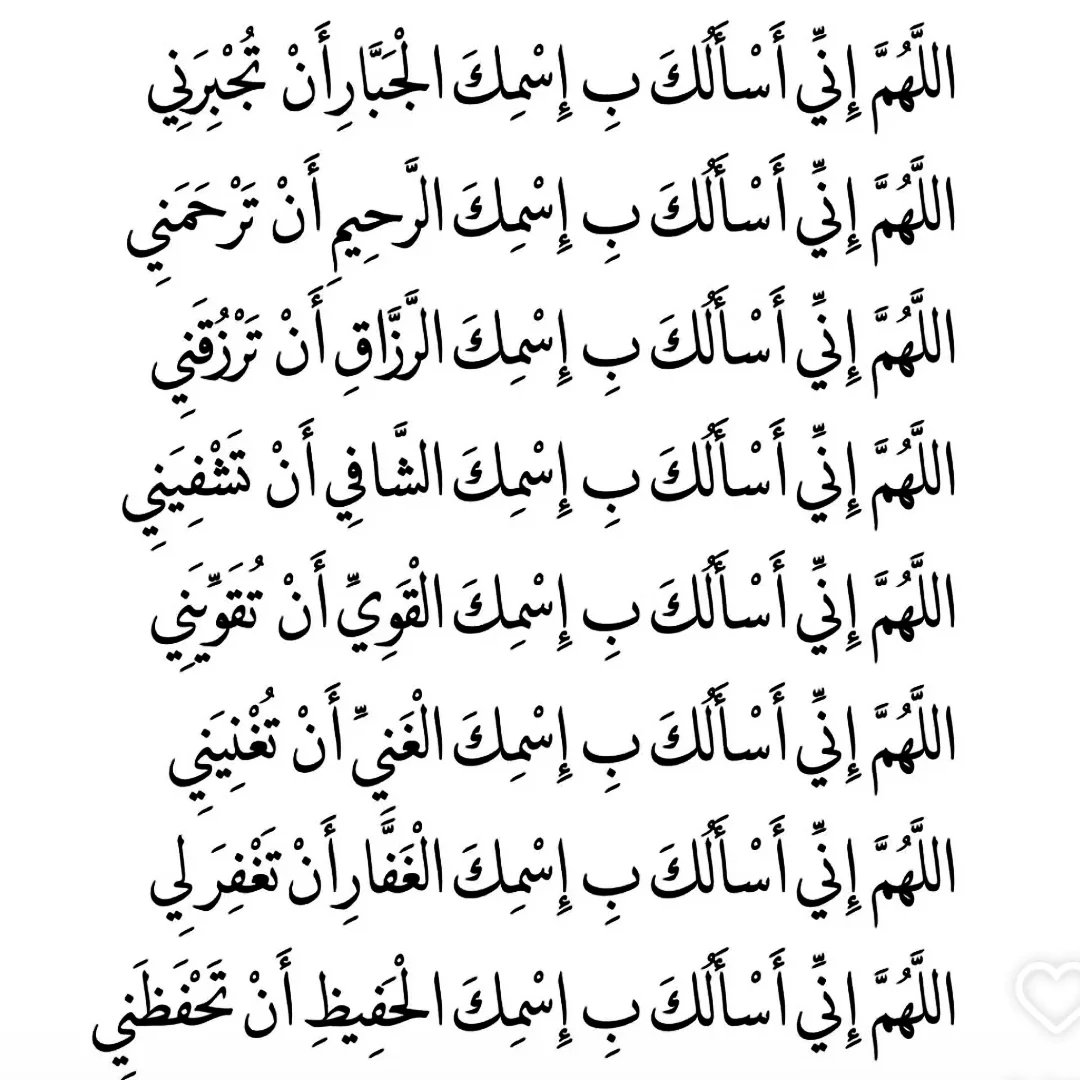 اللَّهُمَّ إِنِّي أَسْأَلُكَ بِ إِسْمِكَ الْجَبَّارِ أَنْ تُجْبِرَنِي
اللَّهُمَّ إِنِّي أَسْأَلُكَ بِ إِسْمِكَ الرَّحِيمِ أَنْ تَرْحَمَنِي
اللَّهُمَّ إِنِّي أَسْأَلُكَ بِ إِسْمِكَ الرَّزَّاقِ أَنْ تَرْزُقَنِي
اللَّهُمَّ إِنِّي أَسْأَلُكَ بِ إِسْمِكَ الشَّافِي أَنْ تَشْفِيَنِي
اللَّهُمَّ إِنِّي أَسْأَلُكَ بِ إِسْمِكَ الْقَوِيِّ أَنْ تُقَوِّيَنِي
اللَّهُمَّ إِنِّي أَسْأَلُكَ بِ إِسْمِكَ الْغَنِيِّ أَنْ تُغْنِيَنِي
اللَّهُمَّ إِنِّي أَسْأَلُكَ بِ إِسْمِكَ الْغَفَّارِ أَنْ تَغْفِرَ لِي
اللَّهُمَّ إِنِّي أَسْأَلُكَ بِ إِسْمِكَ الْحَفِيظِ أَنْ تَحْفَظَنِي